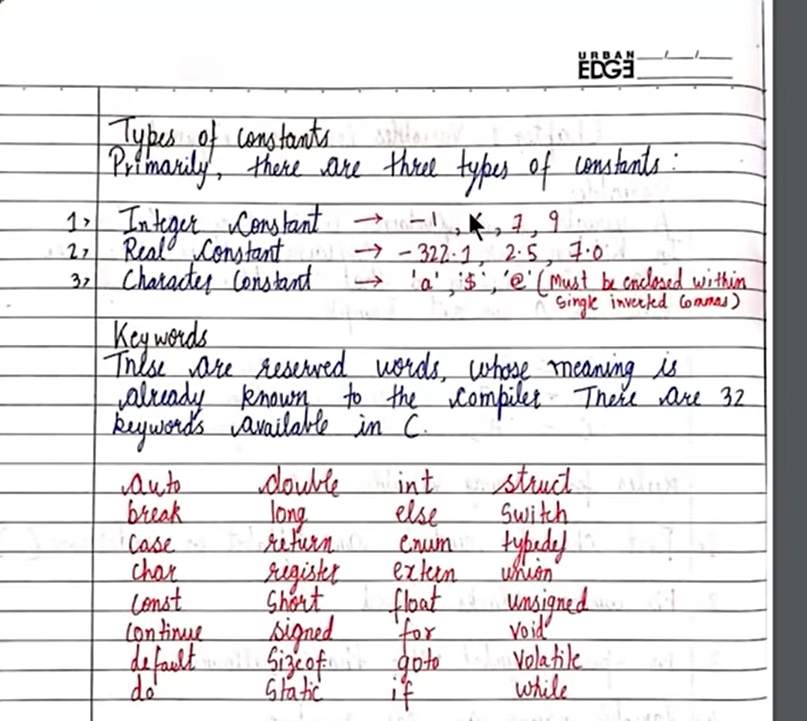 URBAN
EDGE
Types of constants
Primarily, there are three types of constants :
1> Integer Constant → -1 , , 7 , 9
2> Real Constant → -322.1 , 2.5 , 7.0
3> Character Constant → 'a' , '$' , '@' (Must be enclosed within
single inverted commas)
Keywords
These are reserved words, whose meaning is
already known to the compiler There are 32
keywords available in C.
auto double int struct
break long else switch
case return enum typedef
char register extern union
const short float unsigned
continue signed for void
default sizeof goto volatile
do static if while